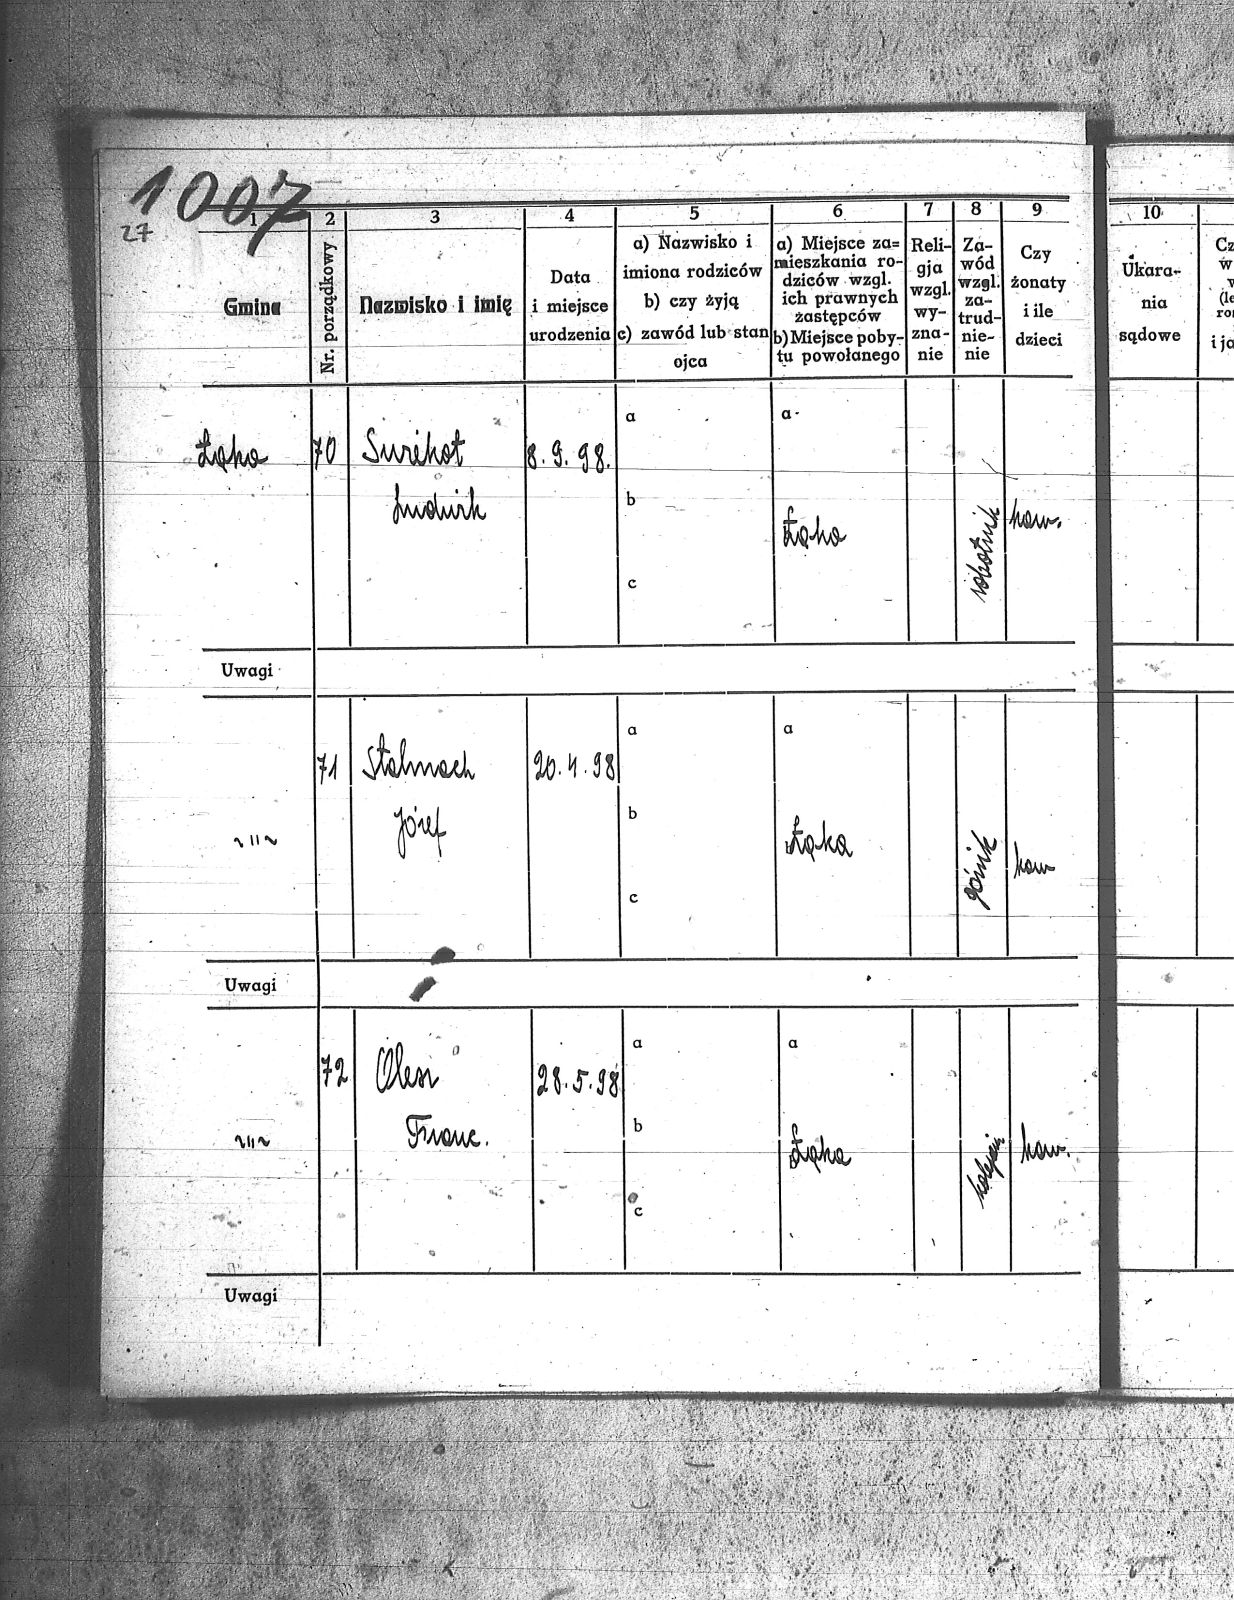 1007
27
1 2 3 4 5 6 7 8 9 10
Gmina
Nr. porządkowy
Nazwisko i imię
Data
i miejsce
urodzenia
a) Nazwisko i
imiona rodziców
b) czy żyją
c) zawód lub stan
ojca
a) Miejsce za=
mieszkania ro-
dziców wzgl.
ich prawnych
zastępców
b) Miejsce poby-
tu powołanego
Reli-
gja
wzgl.
wy-
zna-
nie
Za-
wód
wzgl.
za-
trud-
nie-
nie
Czy
żonaty
i ile
dzieci
Ukara-
nia
sądowe
Łąka 70
Ludwik
8.9.98.
a
b
c
a
Łąka
robotnik
kaw.
Uwagi
~ " ~
71 Stalmach
Józef
20.4.98
a
b
c
a
Łąka
górnik
kaw
Uwagi
~ " ~
72
Franc.
28.5.98
a
b
c
a
Łąka
kaw.
Uwagi